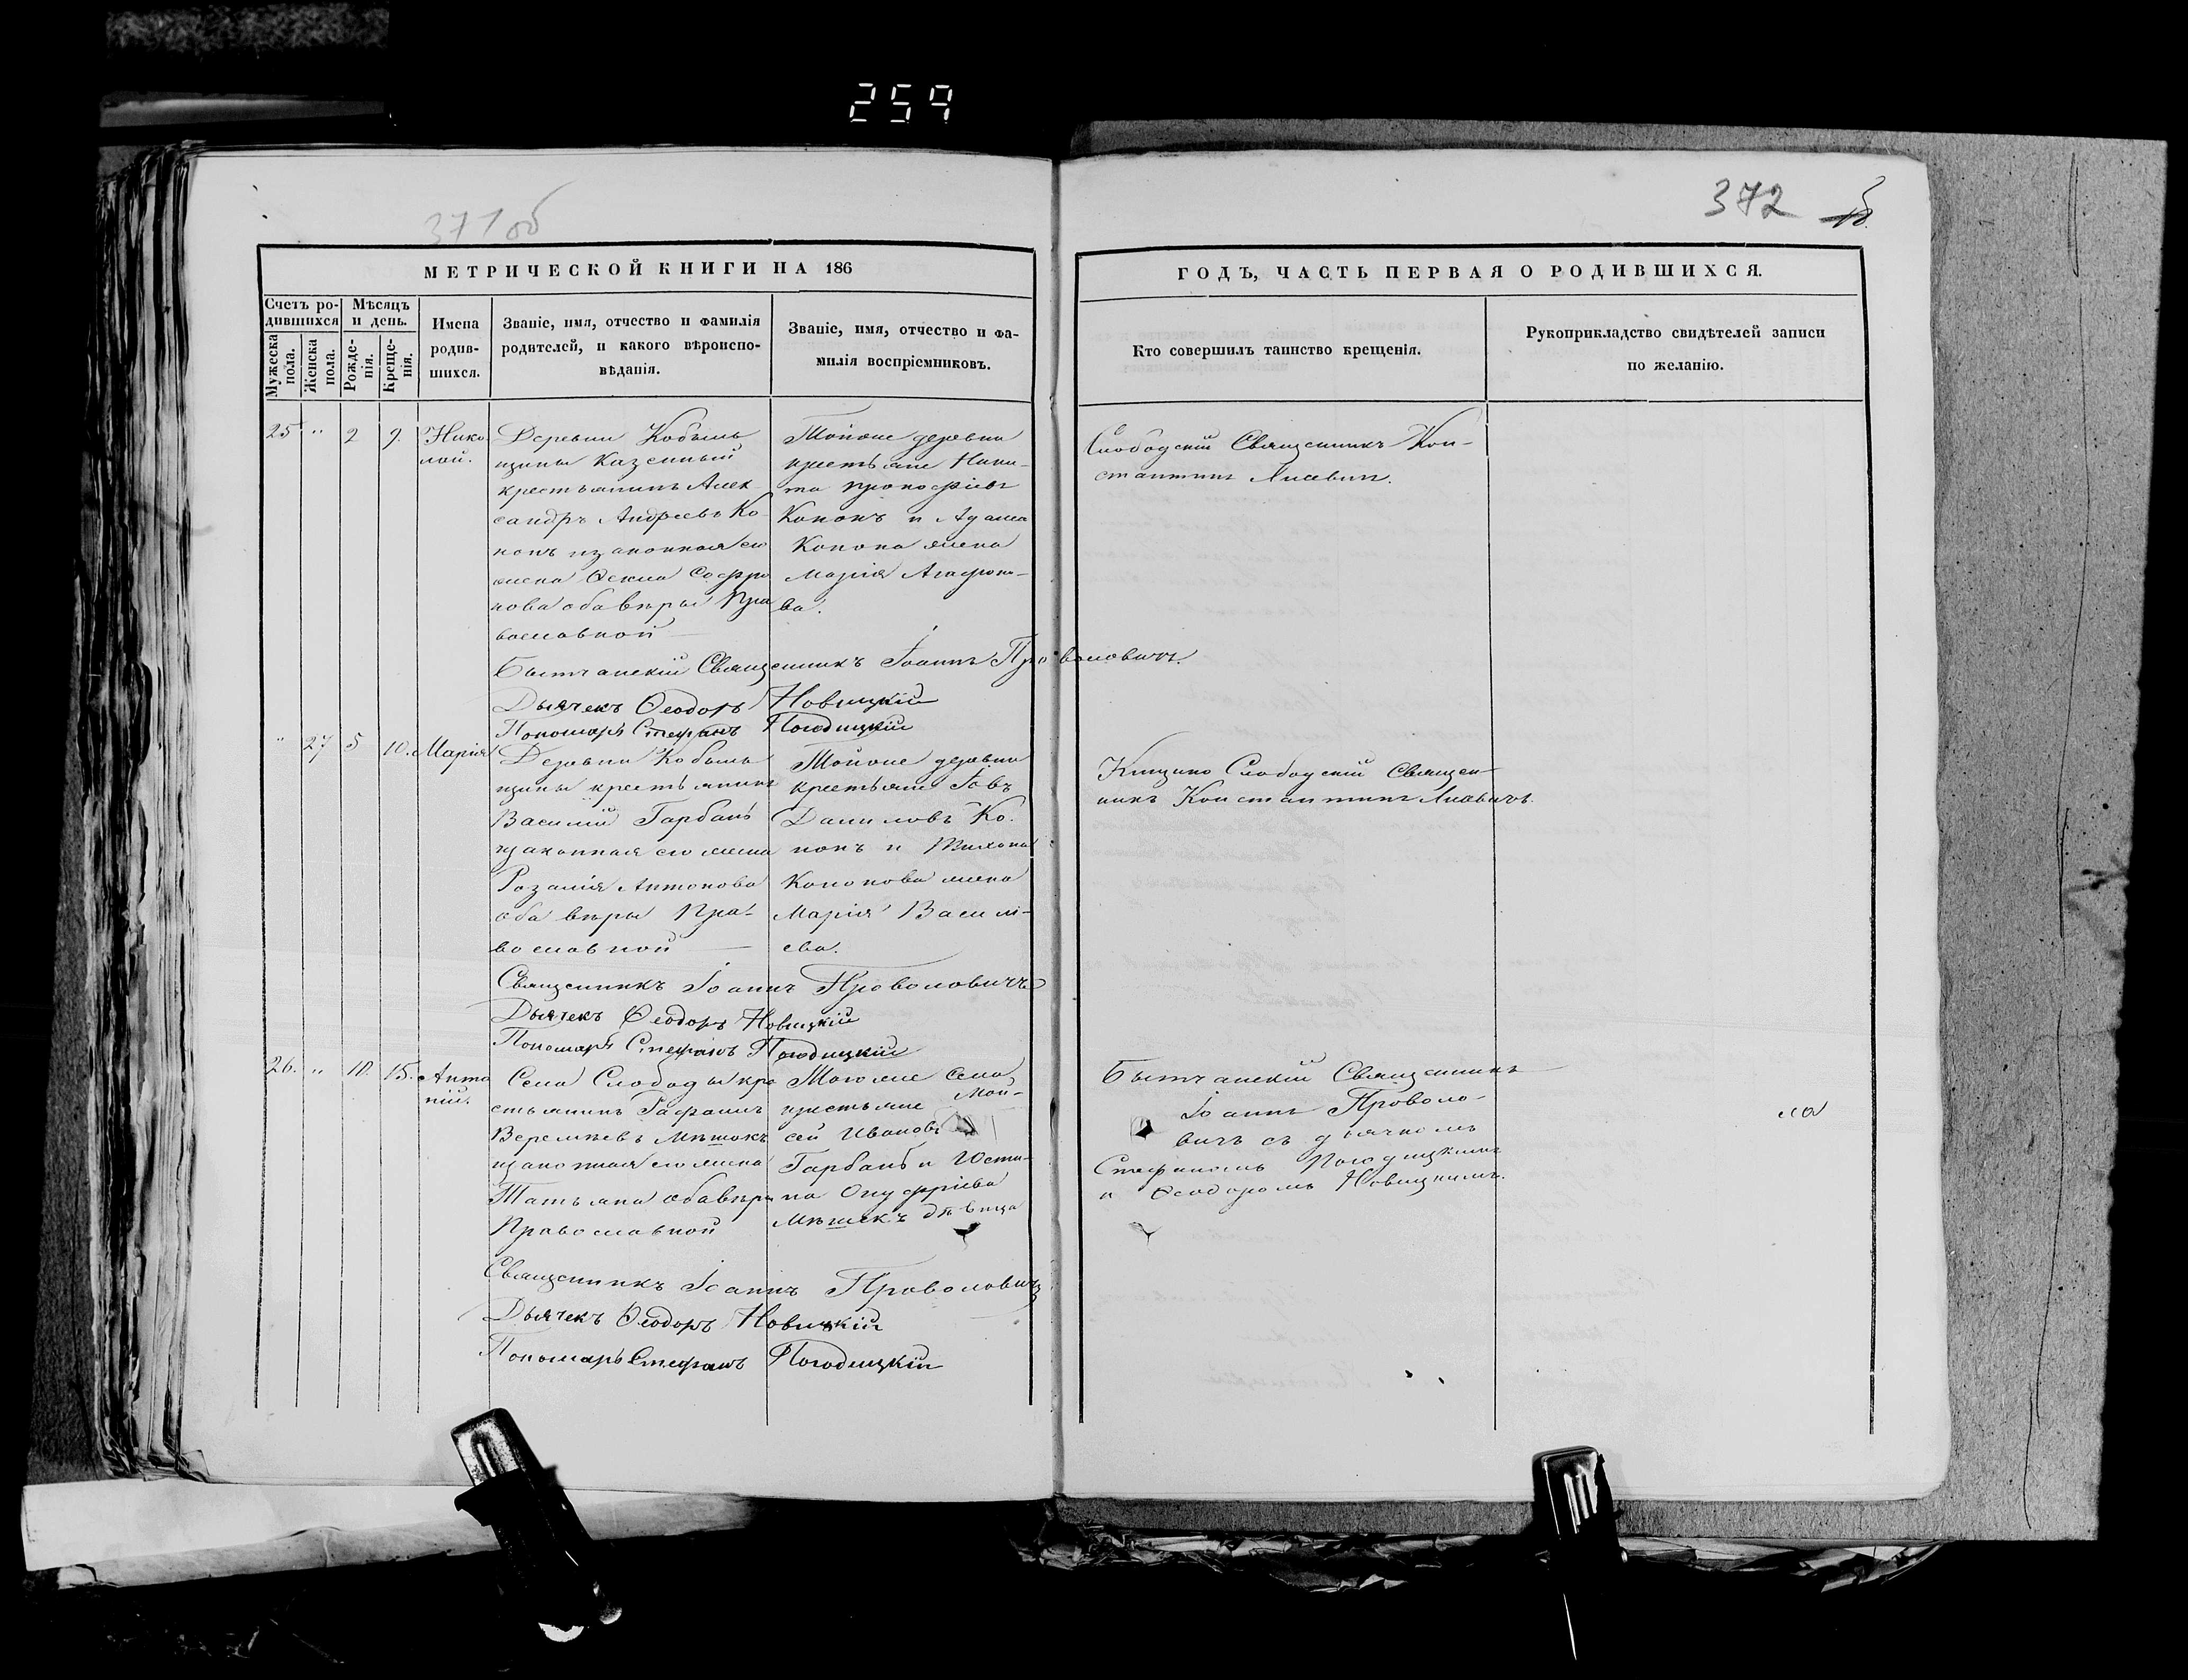 259
371 об
372
МЕТРИЧЕСКОЙ КНИГИ НА 186
ГОДЪ, ЧАСТЬ ПЕРВАЯ О РОДИВШИХСЯ.
Счетъ ро-
дившихся
Мужеска
пола.
Женска
пола.
Мѣсяцъ
и день.
Рожде-
нія.
Креще-
нія.
Имена
родив-
шихся.
Званіе, имя, отчество и фамилія
родителей, и какого вѣроиспо-
вѣданія.
Званіе, имя, отчество и фа-
милія воспріемниковъ.
Кто совершилъ таинство крещенія.
Рукоприкладство свидѣтелей записи
по желанію.
25 " 2 9.
Нико
лай.
Деревни Кобыль
щины Казенный
крестьянинъ Алек
сандръ Андреевъ Ко
нонъ изаконная его
жена Ѳекла Софро
нова оба вѣры Пра
вославной
Тойже деревни
крестьяне Ники-
та Прокофіевъ
Кононъ и Адама
Конона жена
Марія Агафоно-
ва.
Слободскій Священникъ Кон-
стантинъ Лисевичъ.
Бытчанскій Священникъ Іоаннъ Проволовичъ.
Дьячекъ Ѳеодоръ Новицкій
Пономарь Стефанъ Погодицкій
" 27 5 10. Марія
Деревни Кобыль
щины крестьянинъ
Василій Гарбачъ
изаконная его жена
Розалія Антонова
оба вѣры Пра-
вославной
Тойже деревни
крестьяне Іовъ
Даниловъ Ко.
нонъ и Тихона
Кононова жена
Марія Василі-
ева.
Слободскій Священ
никъ Константинъ Лисевичъ.
Священникъ Іоаннъ Проволовичъ
Дьячекъ Ѳеодоръ Новицкій
Пономарь Стефанъ Погодицкій
26. " 10. 15.
Анто
ній.
Села Слободы кре
стьянинъ
Веремѣевъ Мѣшокъ
изаконная его жена
Татьяна оба вѣры
Православной
Тогоже Села
крестьяне Мои-
сей Ивановъ
Гарбачъ и Юсти-
на Онуфріева
Мѣшекъ дѣвица
Бытчанскій Священникъ
Іоаннъ Проволо-
вичъ съ дьячкомъ
Стефаномъ Погодицкимъ
и Ѳеодоромъ Новицкимъ.
Священникъ Іоаннъ Проволовичъ
Дьячекъ Ѳеодоръ Новицкій
Пономарь Стефанъ Погодицкій